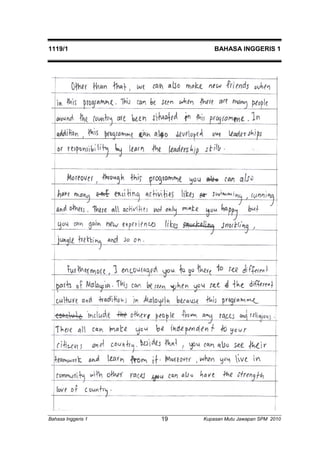 1119/1 BAHASA INGGERIS 1
Other than that, we can also make new friends when
in this programme. This can be seen when there are many people
around the country are been situated in this programme. In
addition, this programme can also developed our leaderships
or responsibility by learn the leadership skills.
Moreover, through this programme you can also
have many exciting activities likes swimming, running
and others. There all activities not only make you happy but
you can gain new experiences likes snorkling,
jungle trekking and so on.
Furthermore, I encouraged you to go there to see different
parts of Malaysia. This can be seen when you see the different
culture and traditions in Malaysia because this programme
include other people from any races and religious.
There all can make you be independent to your
citizens and country. Besides that, you can also see their
teamwork and learn from it. Moreover, when you live in
community with other races you can also have the strength
love of country.
Bahasa Inggeris 1 19 Kupasan Mutu Jawapan SPM 2010